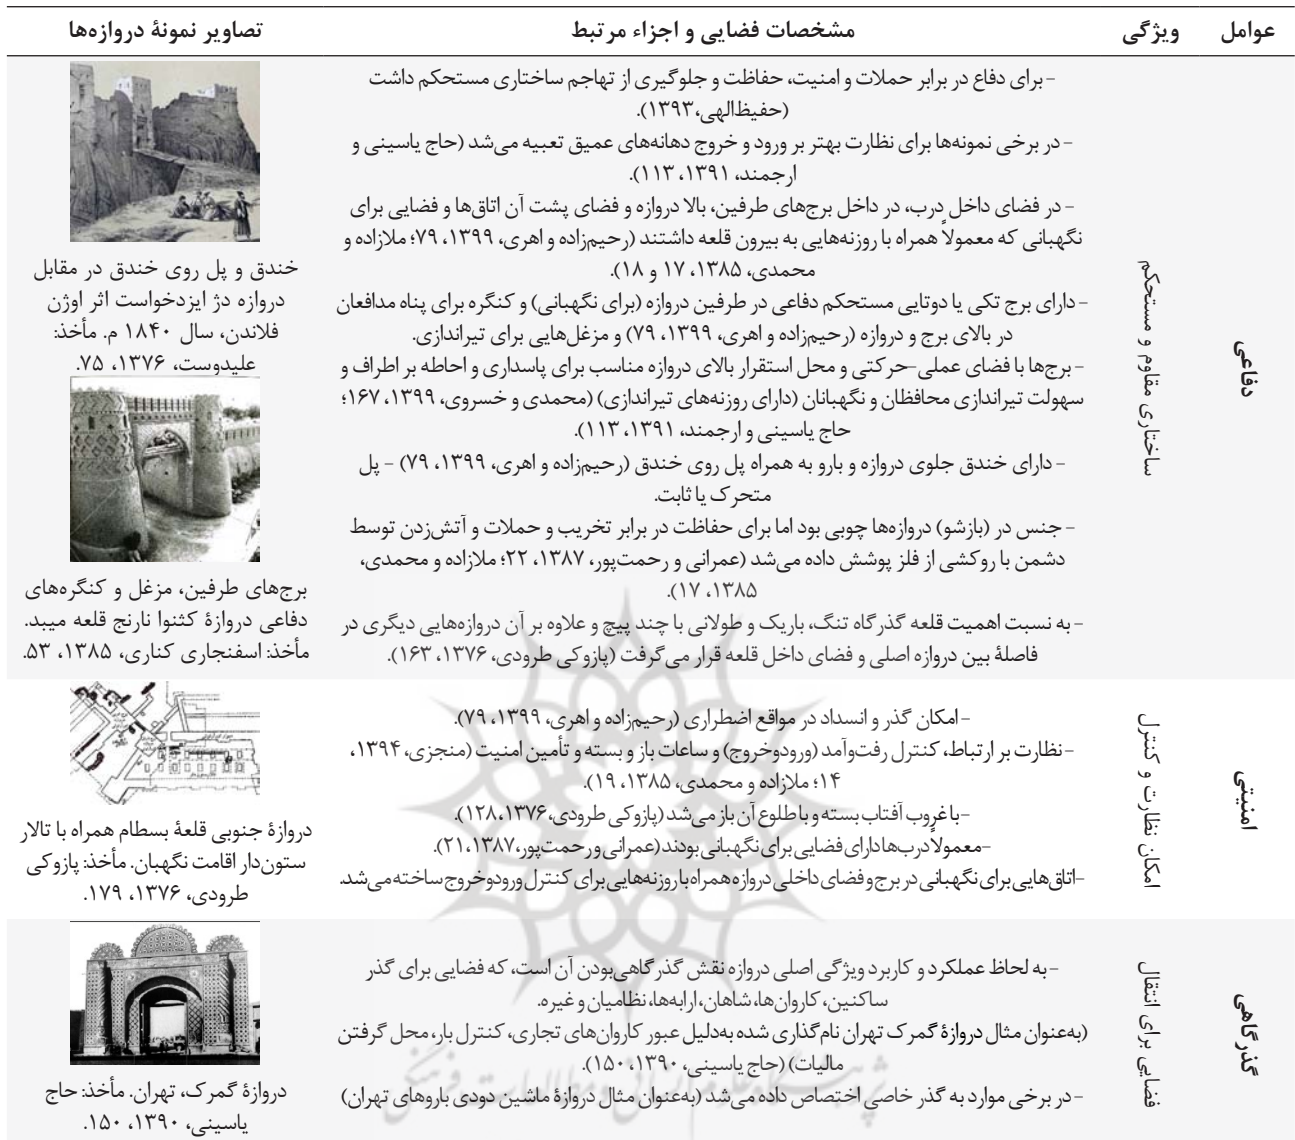 عوامل
ویژگی
مشخصات فضایی و اجزاء مرتبط
تصاویر نمونهٔ دروازه‌ها
دفاعی
ساختاری مقاوم و مستحکم
- برای دفاع در برابر حملات و امنیت، حفاظت و جلوگیری از تهاجم ساختاری مستحکم داشت
(حفیظ‌الهی،۱۳۹۳).
- در برخی نمونه‌ها برای نظارت بهتر بر ورود و خروج دهانه‌های عمیق تعبیه می‌شد (حاج یاسینی و
ارجمند، ۱۳۹۱، ۱۱۳).
- در فضای داخل درب، در داخل برج‌های طرفین، بالا دروازه و فضای پشت آن اتاق‌ها و فضایی برای
نگهبانی که معمولاً همراه با روزنه‌هایی به بیرون قلعه داشتند (رحیم‌زاده و اهری، ۱۳۹۹، ۷۹؛ ملازاده و
محمدی، ۱۳۸۵، ۱۷ و ۱۸).
- دارای برج تکی یا دوتایی مستحکم دفاعی در طرفین دروازه (برای نگهبانی) و کنگره برای پناه مدافعان
در بالای برج و دروازه (رحیم‌زاده و اهری، ۱۳۹۹، ۷۹) و مزغل‌هایی برای تیراندازی.
- برج‌ها با فضای عملی-حرکتی و محل استقرار بالای دروازه مناسب برای پاسداری و احاطه بر اطراف و
سهولت تیراندازی محافظان و نگهبانان (دارای روزنه‌های تیراندازی) (محمدی و خسروی، ۱۳۹۹، ۱۶۷؛
حاج یاسینی و ارجمند، ۱۳۹۱، ۱۱۳).
- دارای خندق جلوی دروازه و بارو به همراه پل روی خندق (رحیم‌زاده و اهری، ۱۳۹۹، ۷۹) - پل
متحرک یا ثابت.
- جنس در (بازشو) دروازه‌ها چوبی بود اما برای حفاظت در برابر تخریب و حملات و آتش‌زدن توسط
دشمن با روکشی از فلز پوشش داده می‌شد (عمرانی و رحمت‌پور، ۱۳۸۷، ۲۲؛ ملازاده و محمدی،
۱۳۸۵، ۱۷).
- به نسبت اهمیت قلعه گذرگاه تنگ، باریک و طولانی با چند پیچ و علاوه بر آن دروازه‌هایی دیگری در
فاصلهٔ بین دروازه اصلی و فضای داخل قلعه قرار می‌گرفت (پازوکی طرودی، ۱۳۷۶، ۱۶۳).
خندق و پل روی خندق در مقابل
دروازه دژ ایزدخواست اثر اوژن
فلاندن، سال ۱۸۴۰ م. مأخذ:
علیدوست، ۱۳۷۶، ۷۵.
برج‌های طرفین، مزغل و کنگره‌های
دفاعی دروازهٔ کثنوا نارنج قلعه میبد.
مأخذ: اسفنجاری کناری، ۱۳۸۵، ۵۳.
امنیتی
امکان نظارت و کنترل
- امکان گذر و انسداد در مواقع اضطراری (رحیم‌زاده و اهری، ۱۳۹۹، ۷۹).
- نظارت بر ارتباط، کنترل رفت‌وآمد (ورودوخروج) و ساعات باز و بسته و تأمین امنیت (منجزی، ۱۳۹۴،
۱۴؛ ملازاده و محمدی، ۱۳۸۵، ۱۹).
-با غروب آفتاب بسته و با طلوع آن باز می‌شد (پازوکی طرودی،۱۳۷۶،۱۲۸).
-معمولاً درب‌ها دارای فضایی برای نگهبانی بودند (عمرانی و رحمت‌پور،۱۳۸۷،۲۱).
-اتاق‌هایی برای نگهبانی در برج و فضای داخلی دروازه همراه با روزنه‌هایی برای کنترل ورودوخروج ساخته می‌شد.
دروازهٔ جنوبی قلعهٔ بسطام همراه با تالار
ستون‌دار اقامت نگهبان. مأخذ: پازوکی
طرودی، ۱۳۷۶، ۱۷۹.
گذرگاهی
فضایی برای انتقال
- به لحاظ عملکرد و کاربرد ویژگی اصلی دروازه نقش گذرگاهی‌بودن آن است، که فضایی برای گذر
ساکنین، کاروان‌ها، شاهان، ارابه‌ها، نظامیان و غیره.
(به‌عنوان مثال دروازهٔ گمرک تهران نام‌گذاری شده به‌دلیل عبور کاروان‌های تجاری، کنترل بار، محل گرفتن
مالیات) (حاج یاسینی، ۱۳۹۰، ۱۵۰).
- در برخی موارد به گذر خاصی اختصاص داده می‌شد (به‌عنوان مثال دروازهٔ ماشین دودی باروهای تهران)
دروازهٔ گمرک، تهران. مأخذ: حاج
یاسینی، ۱۳۹۰، ۱۵۰.
پژوهشگاه علوم انسانی و مطالعات فرهنگی